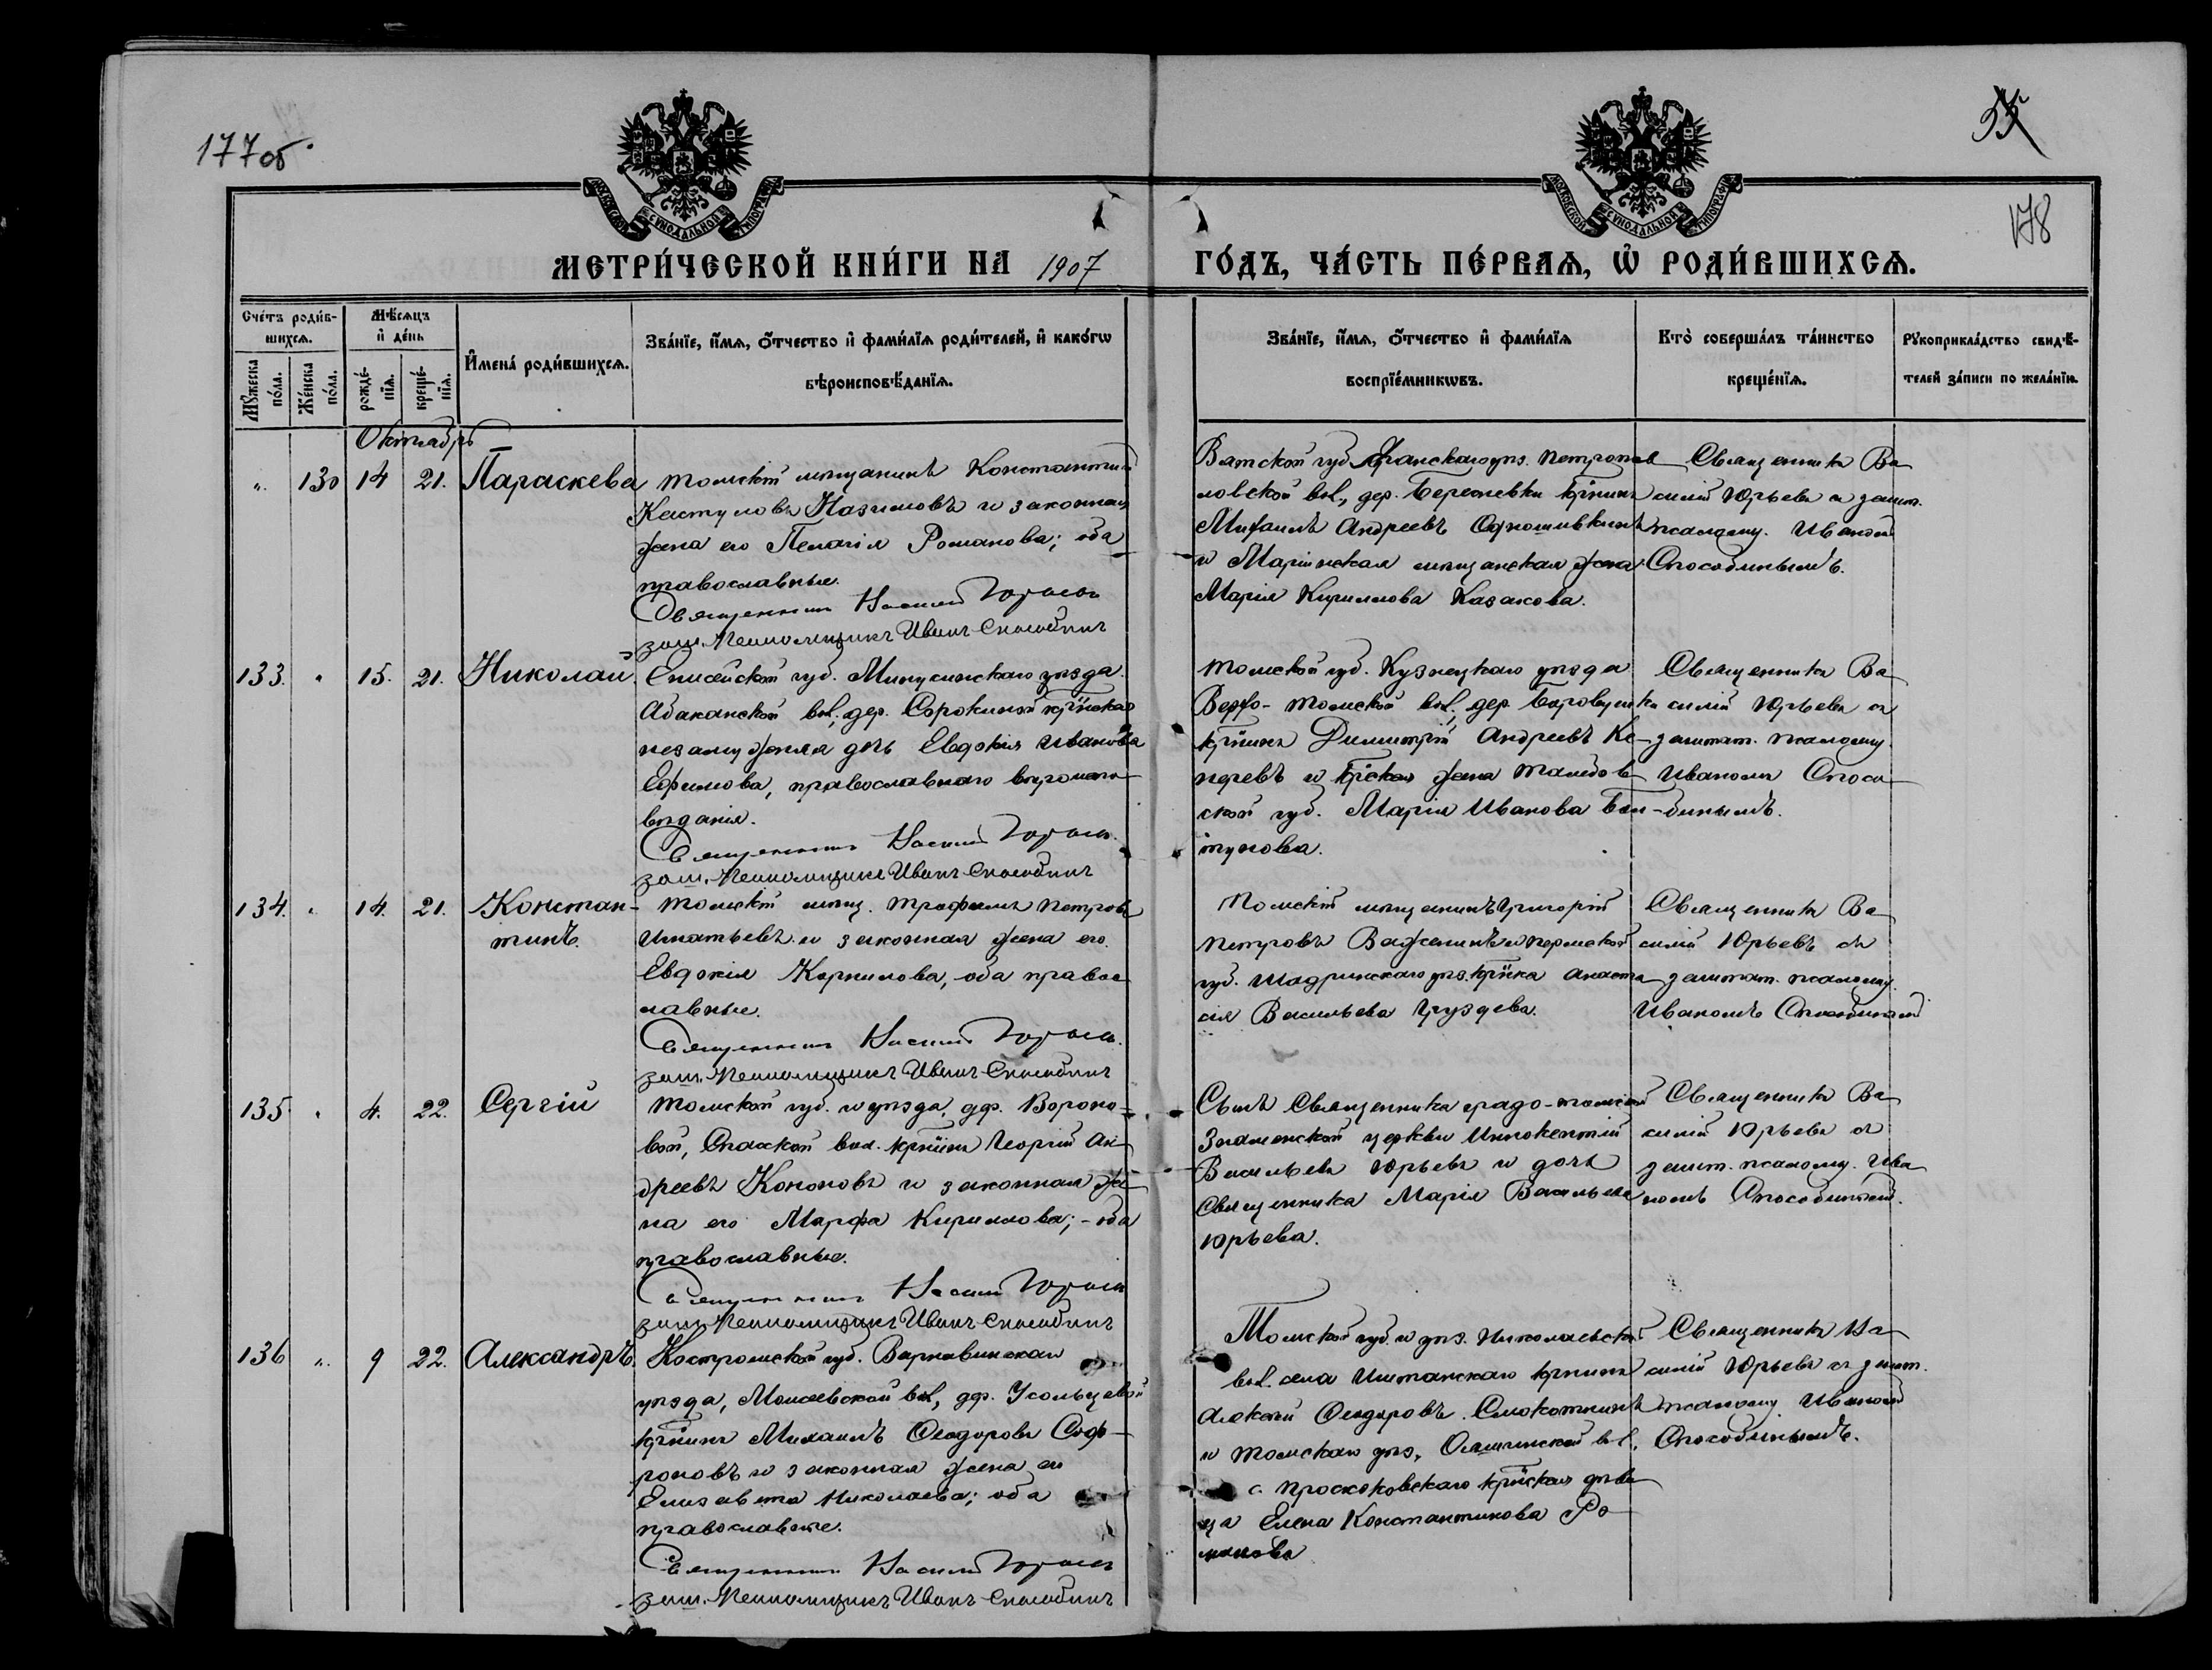 177об.
55
178
МОСКОВСКОЙ СѴНОДАЛЬНОЙ ТИПОГРАФІИ
МОСКОВСКОЙ СѴНОДАЛЬНОЙ ТИПОГРАФІИ
МЕТРИ́ЧЕСКОЙ КНИ́ГИ НА 1907
ГО́ДЪ, ЧА́СТЬ ПЕ́РВАѦ, Ѡ҆ РОДИ́ВШИХСѦ.
Сче́тъ роди́в-
шихсѧ.
Мꙋ́жеска по́ла.
Же́нска по́ла.
Мѣ́сѧцъ
и҆ де́нь
рожде́-
нїѧ.
креще́-
нїѧ.
И҆мена́ роди́вшихсѧ.
Зва́нїе, и҆́мѧ, ѻ҆́тчество и҆ фами́лїѧ роди́телей, и҆ како́гѡ
вѣроисповѣ́данїѧ.
Зва́нїе, и҆́мѧ, ѻ҆́тчество и҆ фами́лїѧ
воспрїе́мникѡвъ.
Кто̀ соверша́лъ та́инство
креще́нїѧ.
Рꙋкоприкла́дство свидѣ́-
телей за́писи по жела́нїю.
Октябрь
" 130 14 21. Параскева
Томскій мѣщанинъ Константинъ
Кастуловъ Назимовъ и законная
жена его Пелагія Романова; оба
православные.
Священникъ Василій Юрьевъ
зашт. Псаломщикъ Иванъ Способинъ
Вятской губ. Яранскаго уѣз. Петропав
ловской вол., дер. Березневки кр̃нинъ
Михаилъ Андреевъ Одношивкинъ
и Маріинская мѣщанская жена
Марія Кириллова Казакова.
Священникъ Ва
силій Юрьевъ съ зашт.
псаломщ. Иваномъ
Способинымъ.
133. " 15. 21. Николай.
Енисейской губ. Минусинскаго уѣзда
Абаканской вол., дер. Сорокиной кр̃нская
незамужняя дочь Евдокія Иванова
Ефимова, православнаго вѣроиспо-
вѣданія.
Священникъ Василій Юрьевъ.
зашт. Псаломщикъ Иванъ Способинъ
Томской губ. Кузнецкаго уѣзда
Верхо-Томской вол., дер. Боровушки
кр̃нинъ Димитрій Андреевъ Ке-
перевъ и кр̃ская жена Тамбов
ской губ. Марія Иванова Бол-
тунова.
Священникъ Ва
силій Юрьевъ съ
заштат. псаломщ.
Иваномъ Спосо-
бинымъ.
134. " 14. 21. Констан-
тинъ.
Томскій мѣщ. Трофимъ Петровъ
Игнатьевъ и законная жена его.
Евдокія Корнилова, оба правос
лавные.
Священникъ Василій Юрьевъ.
зашт. Псаломщикъ Иванъ Способинъ
Томскій мѣщанинъ Григорій
Петровъ Важенинъ и Пермской
губ. Шадринскаго уѣз. кр̃нка Анаста
сія Васильева Груздева.
Священникъ Ва
силій Юрьевъ съ
заштат. псаломщ.
Иваномъ Способинымъ
135 " 4. 22. Сергій
Томской губ. и уѣзда, дер. Вороно-
вой, Спасской вол. кр̃нинъ Георгій Ан
дреевъ Кононовъ и законная же
на его Марфа Кириллова; - оба
православные.
Священникъ Василій Юрьевъ
зашт. Псаломщикъ Иванъ Способинъ
Сынъ Священника градо-томской
Знаменской церкви Иннокентій
Васильевъ Юрьевъ и дочь
Священника Марія Васильева
Юрьева.
Священникъ Ва
силій Юрьевъ съ
зашт. псаломщ. Ива
номъ Способинымъ.
136 " 9 22. Александръ.
Костромской губ. Варнавинскаго
уѣзда, Моисеевской вол., дер. Усольцевой
кр̃нинъ Михаилъ Ѳеодоровъ Соф-
роновъ и законная жена его
Елизавета Николаева; оба
православные.
Священникъ Василій Юрьевъ
зашт. Псаломщикъ Иванъ Способинъ
Томской губ. и уѣз. Николаевской
вол. села Иштанскаго кр̃нинъ
Алексѣй Ѳеодоровъ Смокотнинъ
и Томскаго уѣз. вол.
с. Проскоковскаго кр̃нская дѣви
ца Елена Константинова Ро
манова
Священникъ Ва
силій Юрьевъ съ зашт.
псаломщ. Иваномъ
Способинымъ.